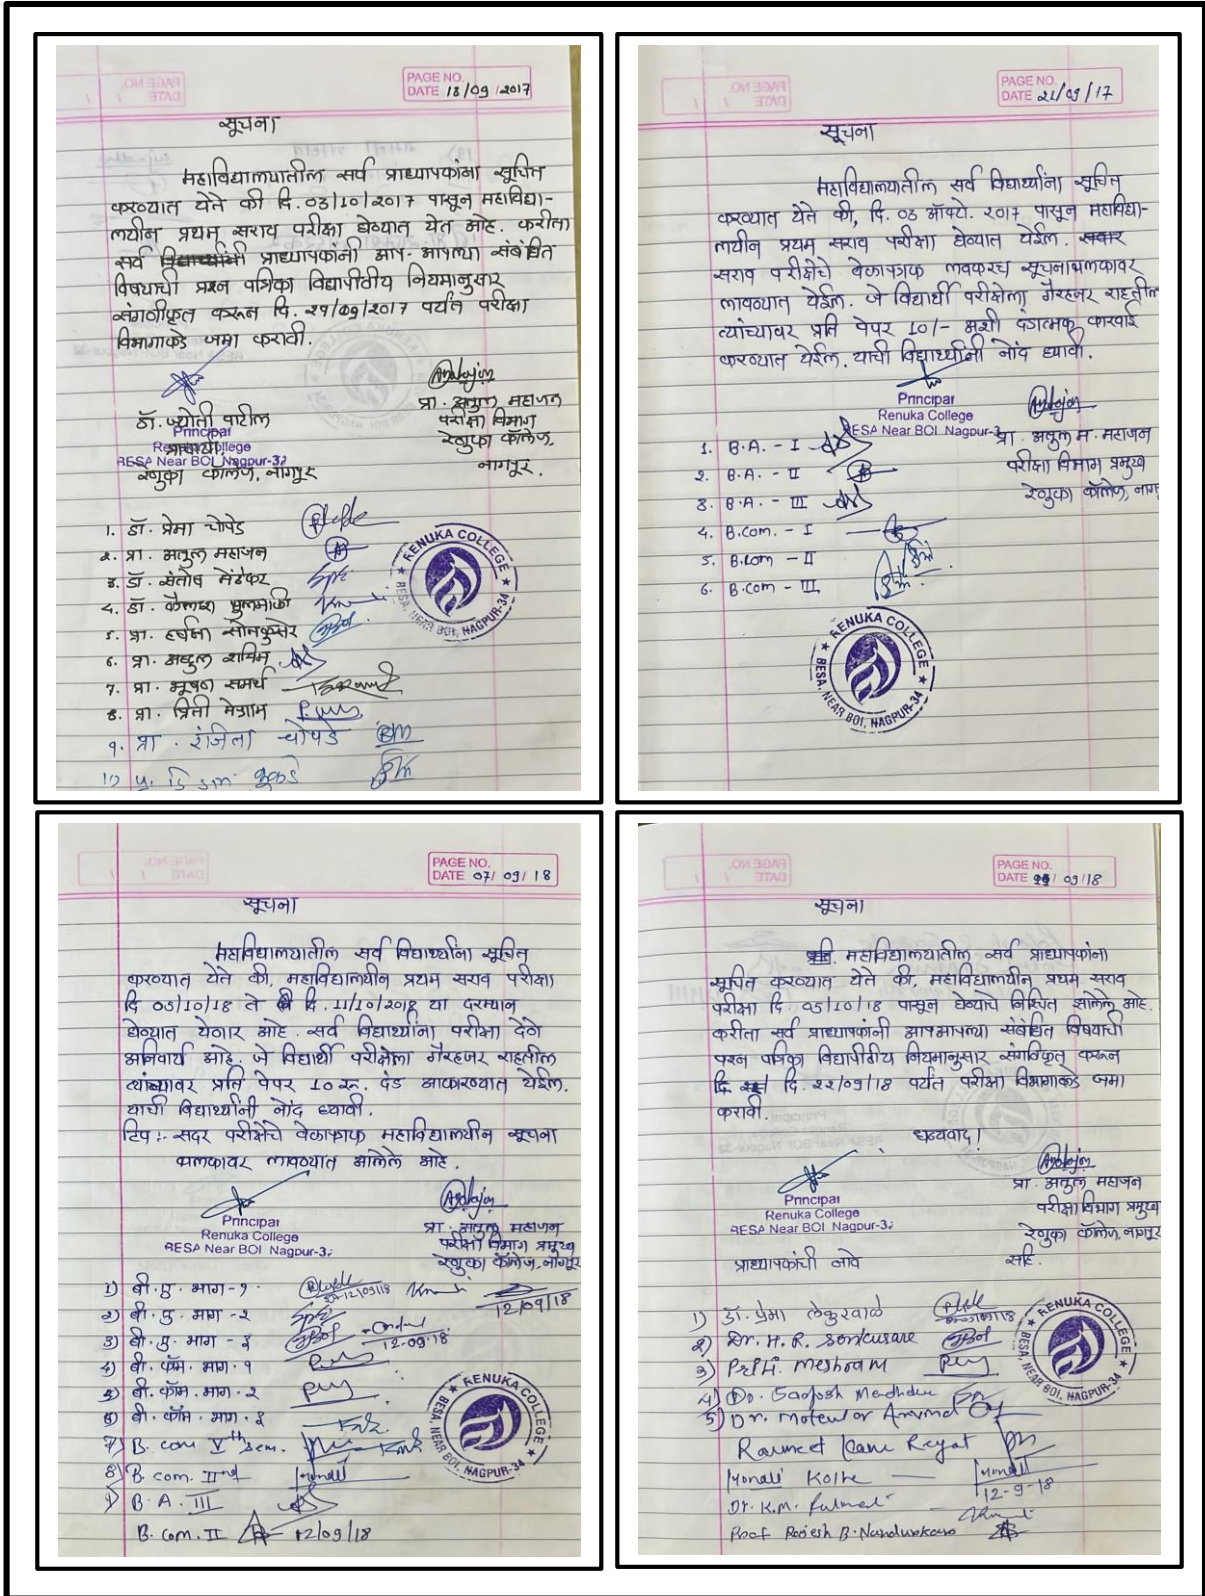 PAGE NO.
DATE 18/09/2017
सूचना
महाविद्यालयातील सर्व प्राध्यापकांना सूचित
करण्यात येते की दि. 03/10/2017 पासून महाविद्या-
लयीन प्रथम सराव परीक्षा घेण्यात येत आहे. करीता
सर्व प्राध्यापकांनी आप-आपल्या संबंधित
विषयाची प्रश्न पत्रिका विद्यापीठीय नियमानुसार
संगणीकृत करून दि. २९/09/2017 पर्यंत परीक्षा
विभागाकडे जमा करावी.
डॉ. ज्योती पाटील
Principal
Renuka College
RESA Near BOI, Nagpur-3
रेणुका कॉलेज, नागपूर
प्रा. अतुल महाजन
परीक्षा विभाग
रेणुका कॉलेज,
नागपूर.
1. डॉ. प्रेमा चोपडे
2. प्रा. अतुल महाजन
3. डॉ. संतोष मेंढेकर
4. डॉ. कैलाश फुलमाळी
5. प्रा. हर्षना सोनकुसरे
6. प्रा. अब्दुल शमिम
7. प्रा. भूषण समर्थ
8. प्रा. प्रिती मेश्राम
9. प्रा. रंजिता चोपडे
RENUKA COLLEGE
BESA, NEAR BOI, NAGPUR-34
PAGE NO.
DATE 21/09/17
सूचना
महाविद्यालयातील सर्व विद्यार्थ्यांना सूचित
करण्यात येते की, दि. 03 ऑक्टो. २०17 पासून महाविद्या-
लयीन प्रथम सराव परीक्षा घेण्यात येईल.
सराव परीक्षेचे वेळापत्रक लवकरच सूचनाफलकावर
लावण्यात येईल. जे विद्यार्थी परीक्षेला गैरहजर राहतील
त्यांच्यावर प्रति पेपर 10/- अशी दंडात्मक कारवाई
करण्यात येईल. याची विद्यार्थ्यांनी नोंद घ्यावी.
Principal
Renuka College
RESA Near BOI Nagpur-3
प्रा. अतुल म. महाजन
परीक्षा विभाग प्रमुख
रेणुका कॉलेज, नाग
1. B.A. - I
2. B.A. - II
3. B.A. - III
4. B.Com. - I
5. B.Com - II
6. B.Com - III
RENUKA COLLEGE
BESA, NEAR BOI, NAGPUR-34
PAGE NO.
DATE 07/09/18
सूचना
महाविद्यालयातील सर्व विद्यार्थ्यांना सूचित
करण्यात येते की, महाविद्यालयीन प्रथम सराव परीक्षा
दि 05/10/18 ते दि. 11/10/2018 या दरम्यान
घेण्यात येणार आहे. सर्व विद्यार्थ्यांना परीक्षा देणे
अनिवार्य आहे. जे विद्यार्थी परीक्षेला गैरहजर राहतील
त्यांच्यावर प्रति पेपर 10 रू. दंड आकारण्यात येईल.
याची विद्यार्थ्यांनी नोंद घ्यावी.
टिप :- सदर परीक्षेचे वेळापत्रक महाविद्यालयीन सूचना
फलकावर लावण्यात आलेले आहे.
Principal
Renuka College
RESA Near BOI Nagpur-3
प्रा. अतुल महाजन
परीक्षा विभाग प्रमुख
रेणुका कॉलेज, नागपूर
1) बी.ए. भाग-१
2) बी.ए. भाग-२
3) बी.ए. भाग-३
12-09-18
4) बी.कॉम. भाग-१
5) बी.कॉम. भाग-२
6) बी.कॉम. भाग-३
7) B. com Vth sem.
8) B. com. IInd
9) B.A. III
B. Com. II 12/09/18
12/09/18
RENUKA COLLEGE
BESA, NEAR BOI, NAGPUR-34
PAGE NO.
DATE /09/18
सूचना
महाविद्यालयातील सर्व प्राध्यापकांना
सूचित करण्यात येते की, महाविद्यालयीन प्रथम सराव
परीक्षा दि. 05/10/18 पासून घेण्याचे निश्चित झालेले आहे.
करीता सर्व प्राध्यापकांनी आपआपल्या संबंधित विषयाची
प्रश्न पत्रिका विद्यापीठीय नियमानुसार संगणिकृत करून
दि. २२/09/18 पर्यंत परीक्षा विभागाकडे जमा
करावी.
धन्यवाद!
Principal
Renuka College
RESA Near BOI Nagpur-3
प्रा. अतुल महाजन
परीक्षा विभाग प्रमुख
रेणुका कॉलेज, नागपूर
प्राध्यापकांची नावे सहि.
1) डॉ. प्रेमा लेकुरवाळे
2) Dr. H. R. Sonkusare
3) Meshram
4) Dr. Santosh
5) Dr.
Kaur
Monali Kolhe
12-9-18
Dr. K.M.
Prof Rajesh B. Nandurkar
RENUKA COLLEGE
BESA, NEAR BOI, NAGPUR-34